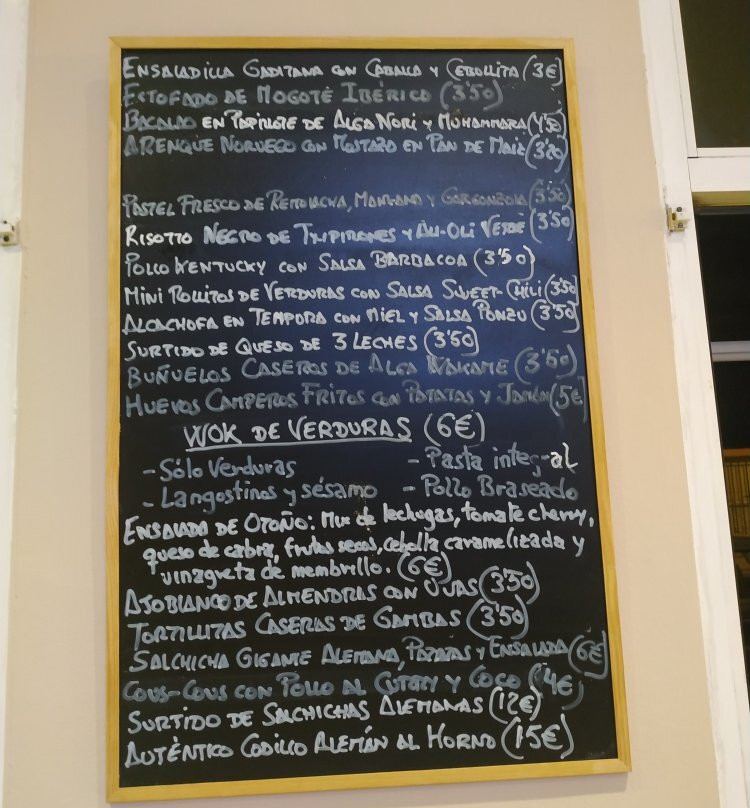 ENSALADILLA GADITANA CON CABALLA Y CEBOLLITA (3€)
ESTOFADO DE MOGOTE IBÉRICO (3'50)
BACALAO EN PAPILLOTE DE ALGA NORI Y MUHAMMARA (4'50)
ARENQUE NORUEGO CON MOSTAZA EN PAN DE MAIZ (3'20)
PASTEL FRESCO DE REMOLACHA, MANZANA Y GORGONZOLA (3'50)
RISOTTO NEGRO DE TXIPIRONES Y ALI-OLI VERDE (3'50)
POLLO KENTUCKY CON SALSA BARBACOA (3'50)
MINI ROLLITOS DE VERDURAS CON SALSA SWEET-CHILI (3'50)
ALCACHOFA EN TEMPURA CON MIEL Y SALSA PONZU (3'50)
SURTIDO DE QUESO DE 3 LECHES (3'50)
BUÑUELOS CASEROS DE ALGA WAKAME (3'50)
HUEVOS CAMPEROS FRITOS CON PATATAS Y JAMÓN (5€)
WOK DE VERDURAS (6€)
- Sólo Verduras - Pasta integral
- Langostinos y sésamo - Pollo Braseado
ENSALADA DE OTOÑO: Mix de lechugas, tomate cherry,
queso de cabra, frutos secos, cebolla caramelizada y
vinagreta de membrillo. (6€)
AJOBLANCO DE ALMENDRAS CON UVAS (3'50)
TORTILLITAS CASERAS DE GAMBAS (3'50)
SALCHICHA GIGANTE ALEMANA, PATATAS Y ENSALADA (6€)
COUS-COUS CON POLLO AL CURRY Y COCO (4€)
SURTIDO DE SALCHICHAS ALEMANAS (12€)
AUTÉNTICO CODILLO ALEMÁN AL HORNO (15€)